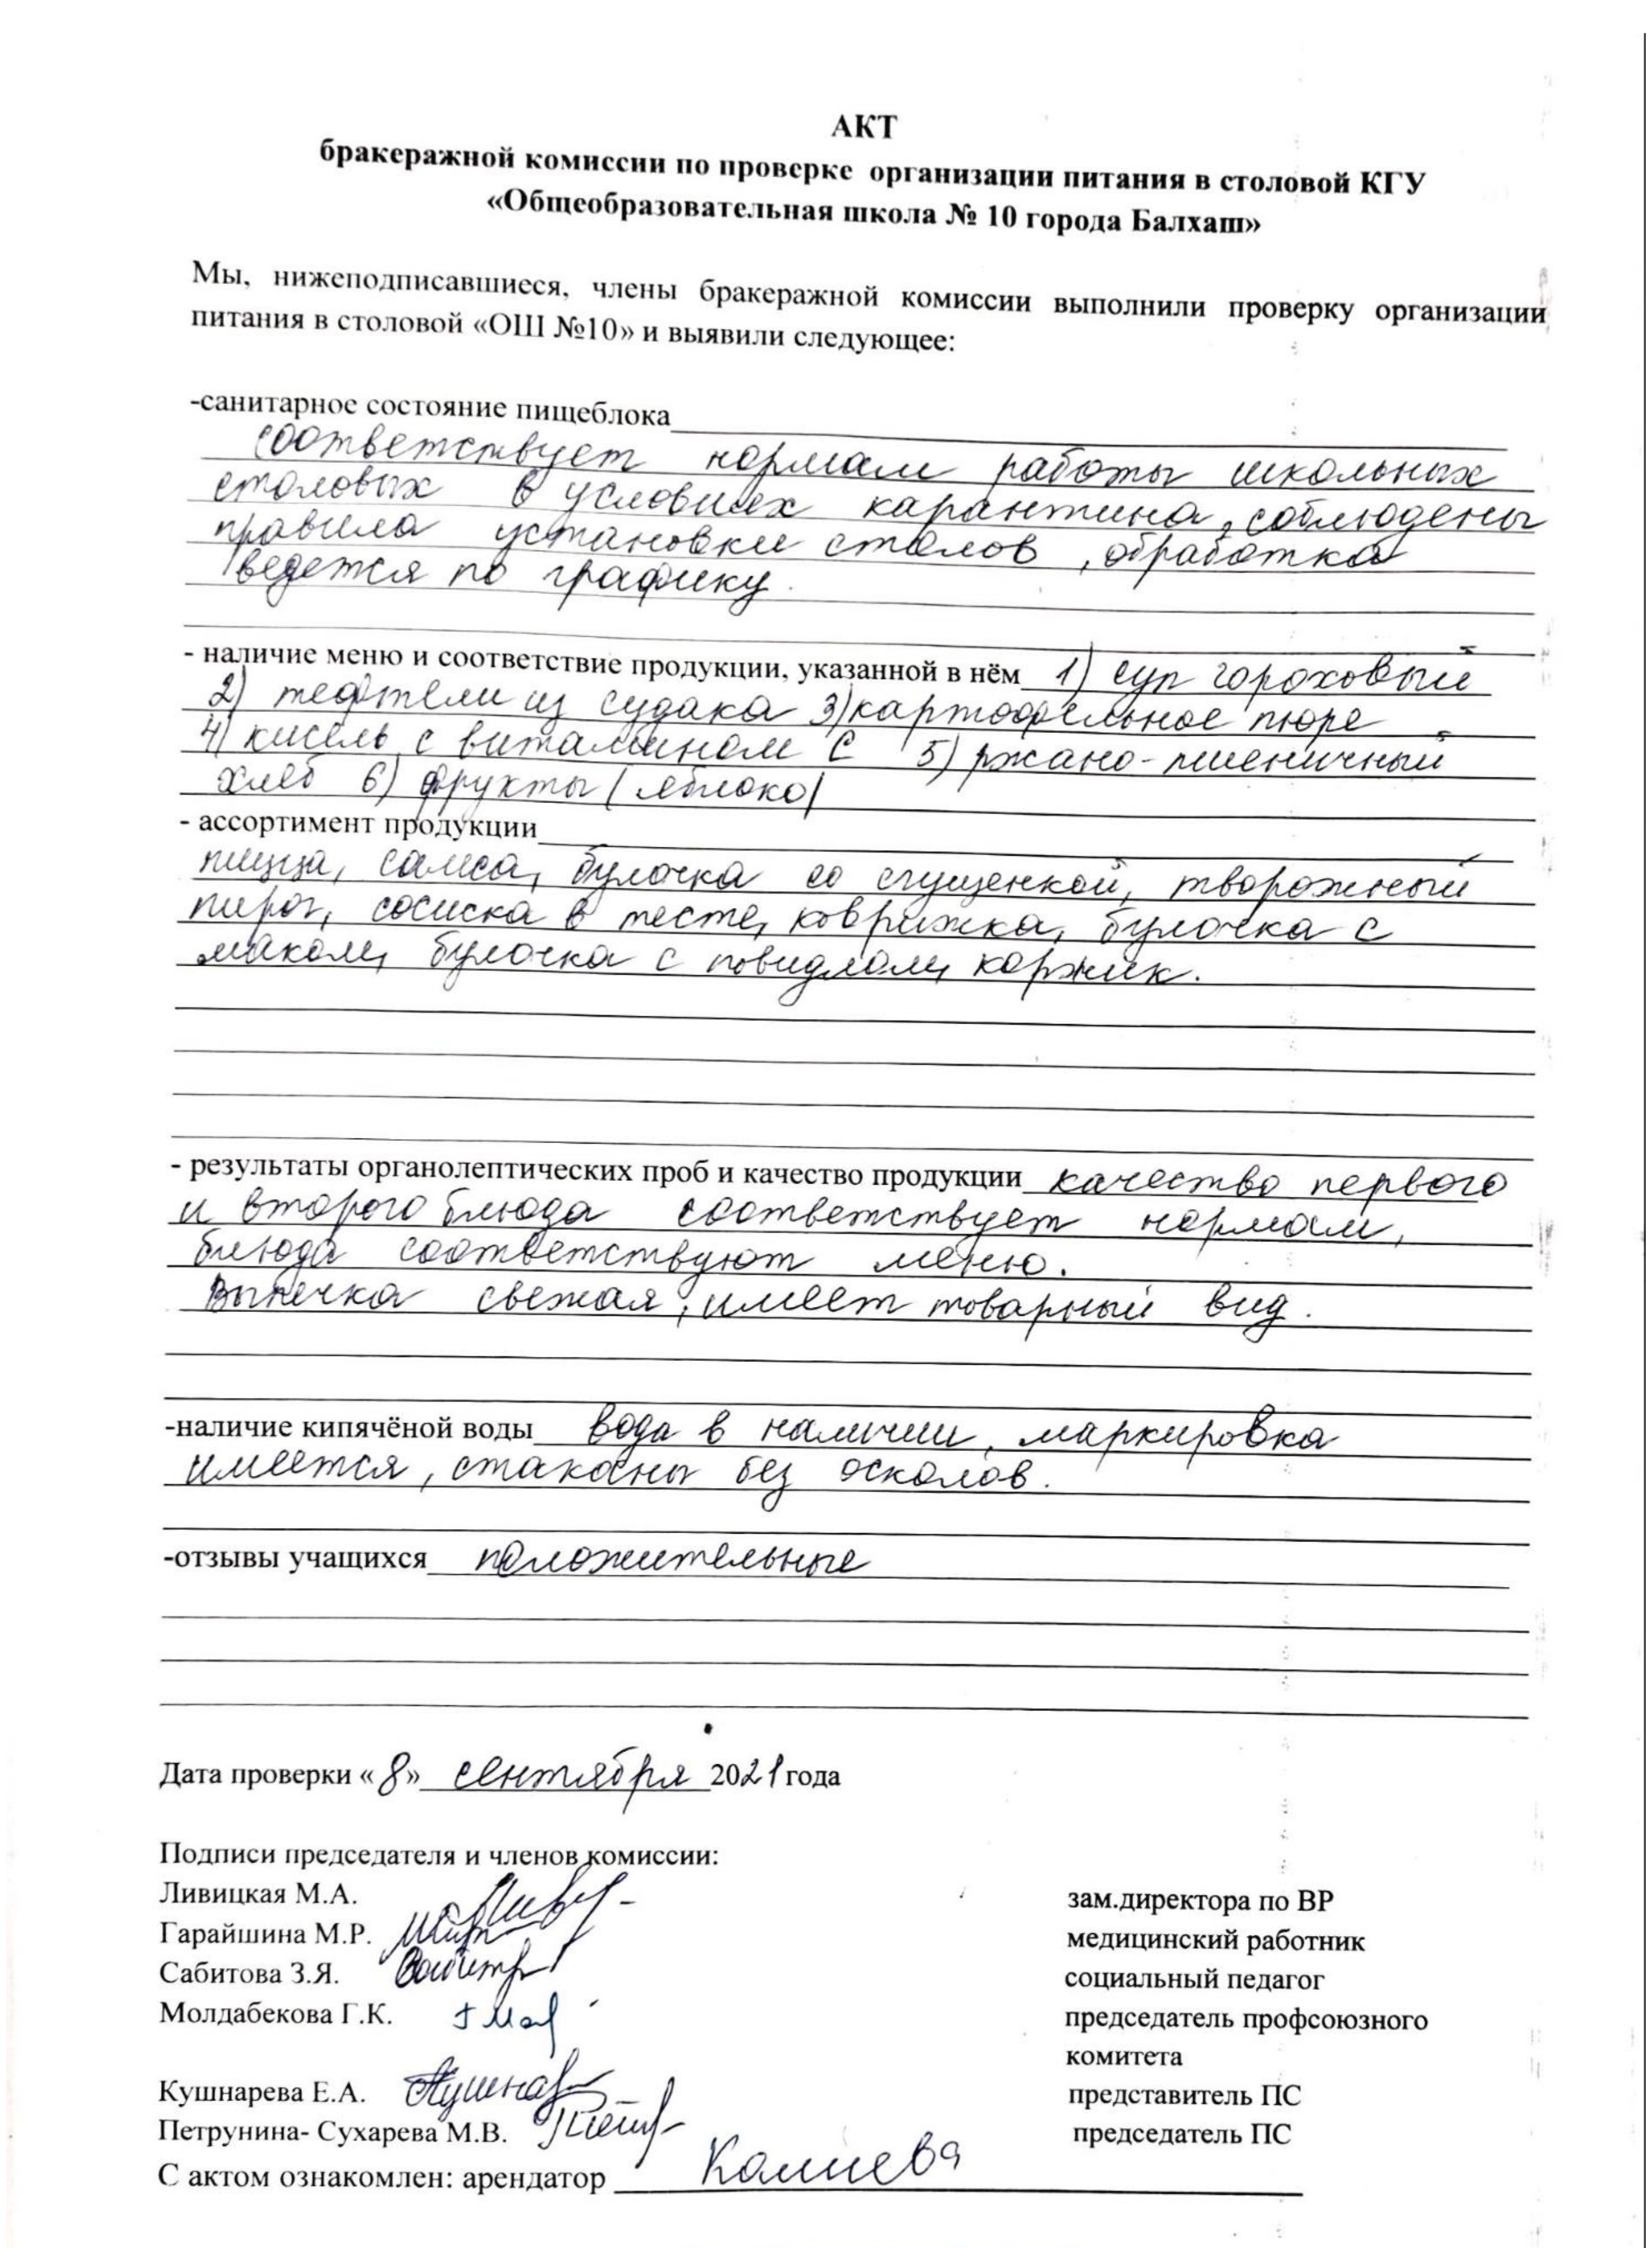 АКТ
бракеражной комиссии по проверке организации питания в столовой КГУ
«Общеобразовательная школа № 10 города Балхаш»
Мы, нижеподписавшиеся, члены бракеражной комиссии выполнили проверку организации
питания в столовой «ОШ №10» и выявили следующее:
-санитарное состояние пищеблока
соответствует нормам работы школьных
столовых в условиях карантина, соблюдены
правила установки столов, обработка
ведется по графику.
- наличие меню и соответствие продукции, указанной в нём 1) суп гороховый
2) тефтели из судака 3) картофельное пюре
4) кисель с витамином С 5) ржано-пшеничный
хлеб 6) фрукты (яблоко)
- ассортимент продукции
пицца, самса, булочка со сгущенкой, творожный
пирог, сосиска в тесте, коврижка, булочка с
маком, булочка с повидлом, коржик.
- результаты органолептических проб и качество продукции качество первого
и второго блюда соответствует нормам,
блюда соответствуют меню.
Выпечка свежая, имеет товарный вид.
-наличие кипячёной воды вода в наличии, маркировка
имеется, стаканы без осколов.
-отзывы учащихся положительные
Дата проверки «8» сентября 2021 года
Подписи председателя и членов комиссии:
Ливицкая М.А. зам.директора по ВР
Гарайшина М.Р. медицинский работник
Сабитова З.Я. социальный педагог
Молдабекова Г.К. председатель профсоюзного
комитета
Кушнарева Е.А. представитель ПС
Петрунина- Сухарева М.В. председатель ПС
С актом ознакомлен: арендатор